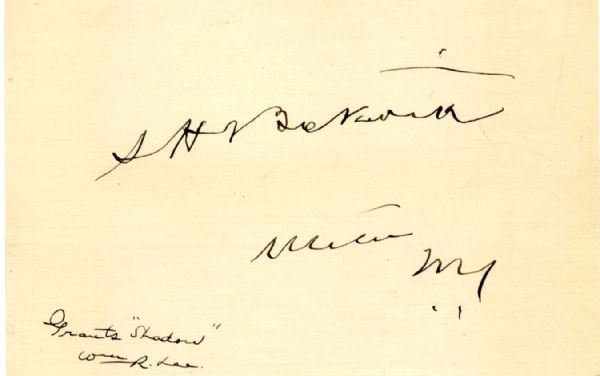 S H Beckwith
Utica NY
Grants "Shadow"
Wm R. Lee.